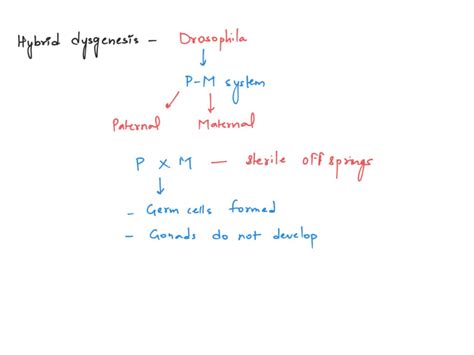 Hybrid dysgenesis - Drosophila
P-M system
Paternal Maternal
P x M - sterile offsprings
- Germ cells formed
- Gonads do not develop